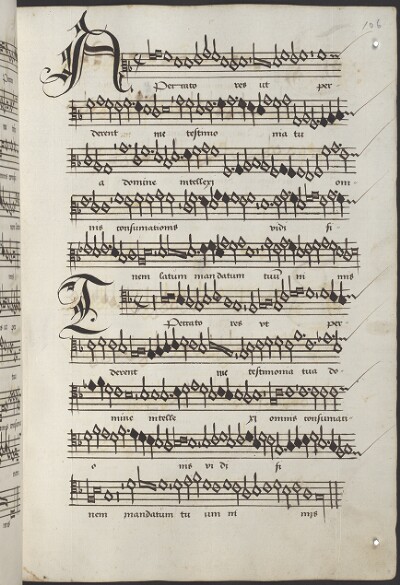 106
A
Per rato res ut per
derent me testimo nia tu
a domine intellexi om
nis consumationis vidi fi
nem latum mandatum tuū ni mis
T
Peccato res vt per
derent me testimonia tua do
mine intelle xi omnis consumati
o nis vi di fi
nem mandatum tu um ni mis